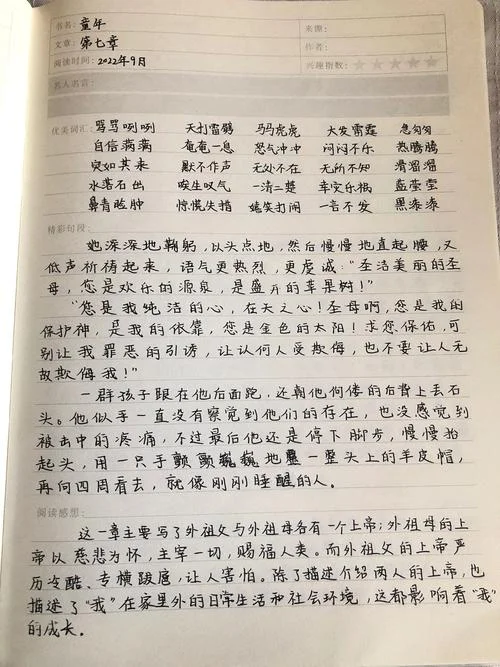 书名：童年
来源：
文章：第七章
作者：
阅读时间：2022年9月
兴趣指数：
名人名言：
优美词汇：骂骂咧咧 天打雷劈 马马虎虎 大发雷霆 急匆匆
自信满满 奄奄一息 怒气冲冲 闷闷不乐 热腾腾
突如其来 默不作声 无处不在 无所不知 滑溜溜
水落石出 唉生叹气 一清二楚 平安乐祸 蓝莹莹
鼻青脸肿 惊慌失措 嬉笑打闹 一言不发 黑漆漆
精彩句段：
她深深地鞠躬，以头点地，然后慢慢地直起腰，又
低声祈祷起来，语气更热烈，更虔诚："圣洁美丽的圣
母，您是欢乐的源泉，是盛开的苹果树！"
"您是我纯洁的心，在天之心！圣母啊，您是我的
保护神，是我的依靠，您是金色的太阳！求您保佑，可
别让我罪恶的引诱，让认何人受欺侮，也不要让人无
故欺侮我！"
一群孩子跟在他后面跑，还朝他佝偻的后背上丢石
头。他似乎一直没有察觉到他们的存在，也没感觉到
被击中的疼痛，不过最后他还是停下脚步，慢慢抬
起头，用一只手颤颤巍巍地整一整头上的羊皮帽，
再向四周看去，就像刚刚睡醒的人。
阅读感想：
这一章主要写了外祖父与外祖母各有一个上帝；外祖母的上
帝以慈悲为怀，主宰一切，赐福人类。而外祖父的上帝严
历冷酷、专横跋扈，让人害怕。除了描述介绍两人的上帝，也
描述了"我"在家里外的日常生活和社会环境，这都影响着"我"
的成长。